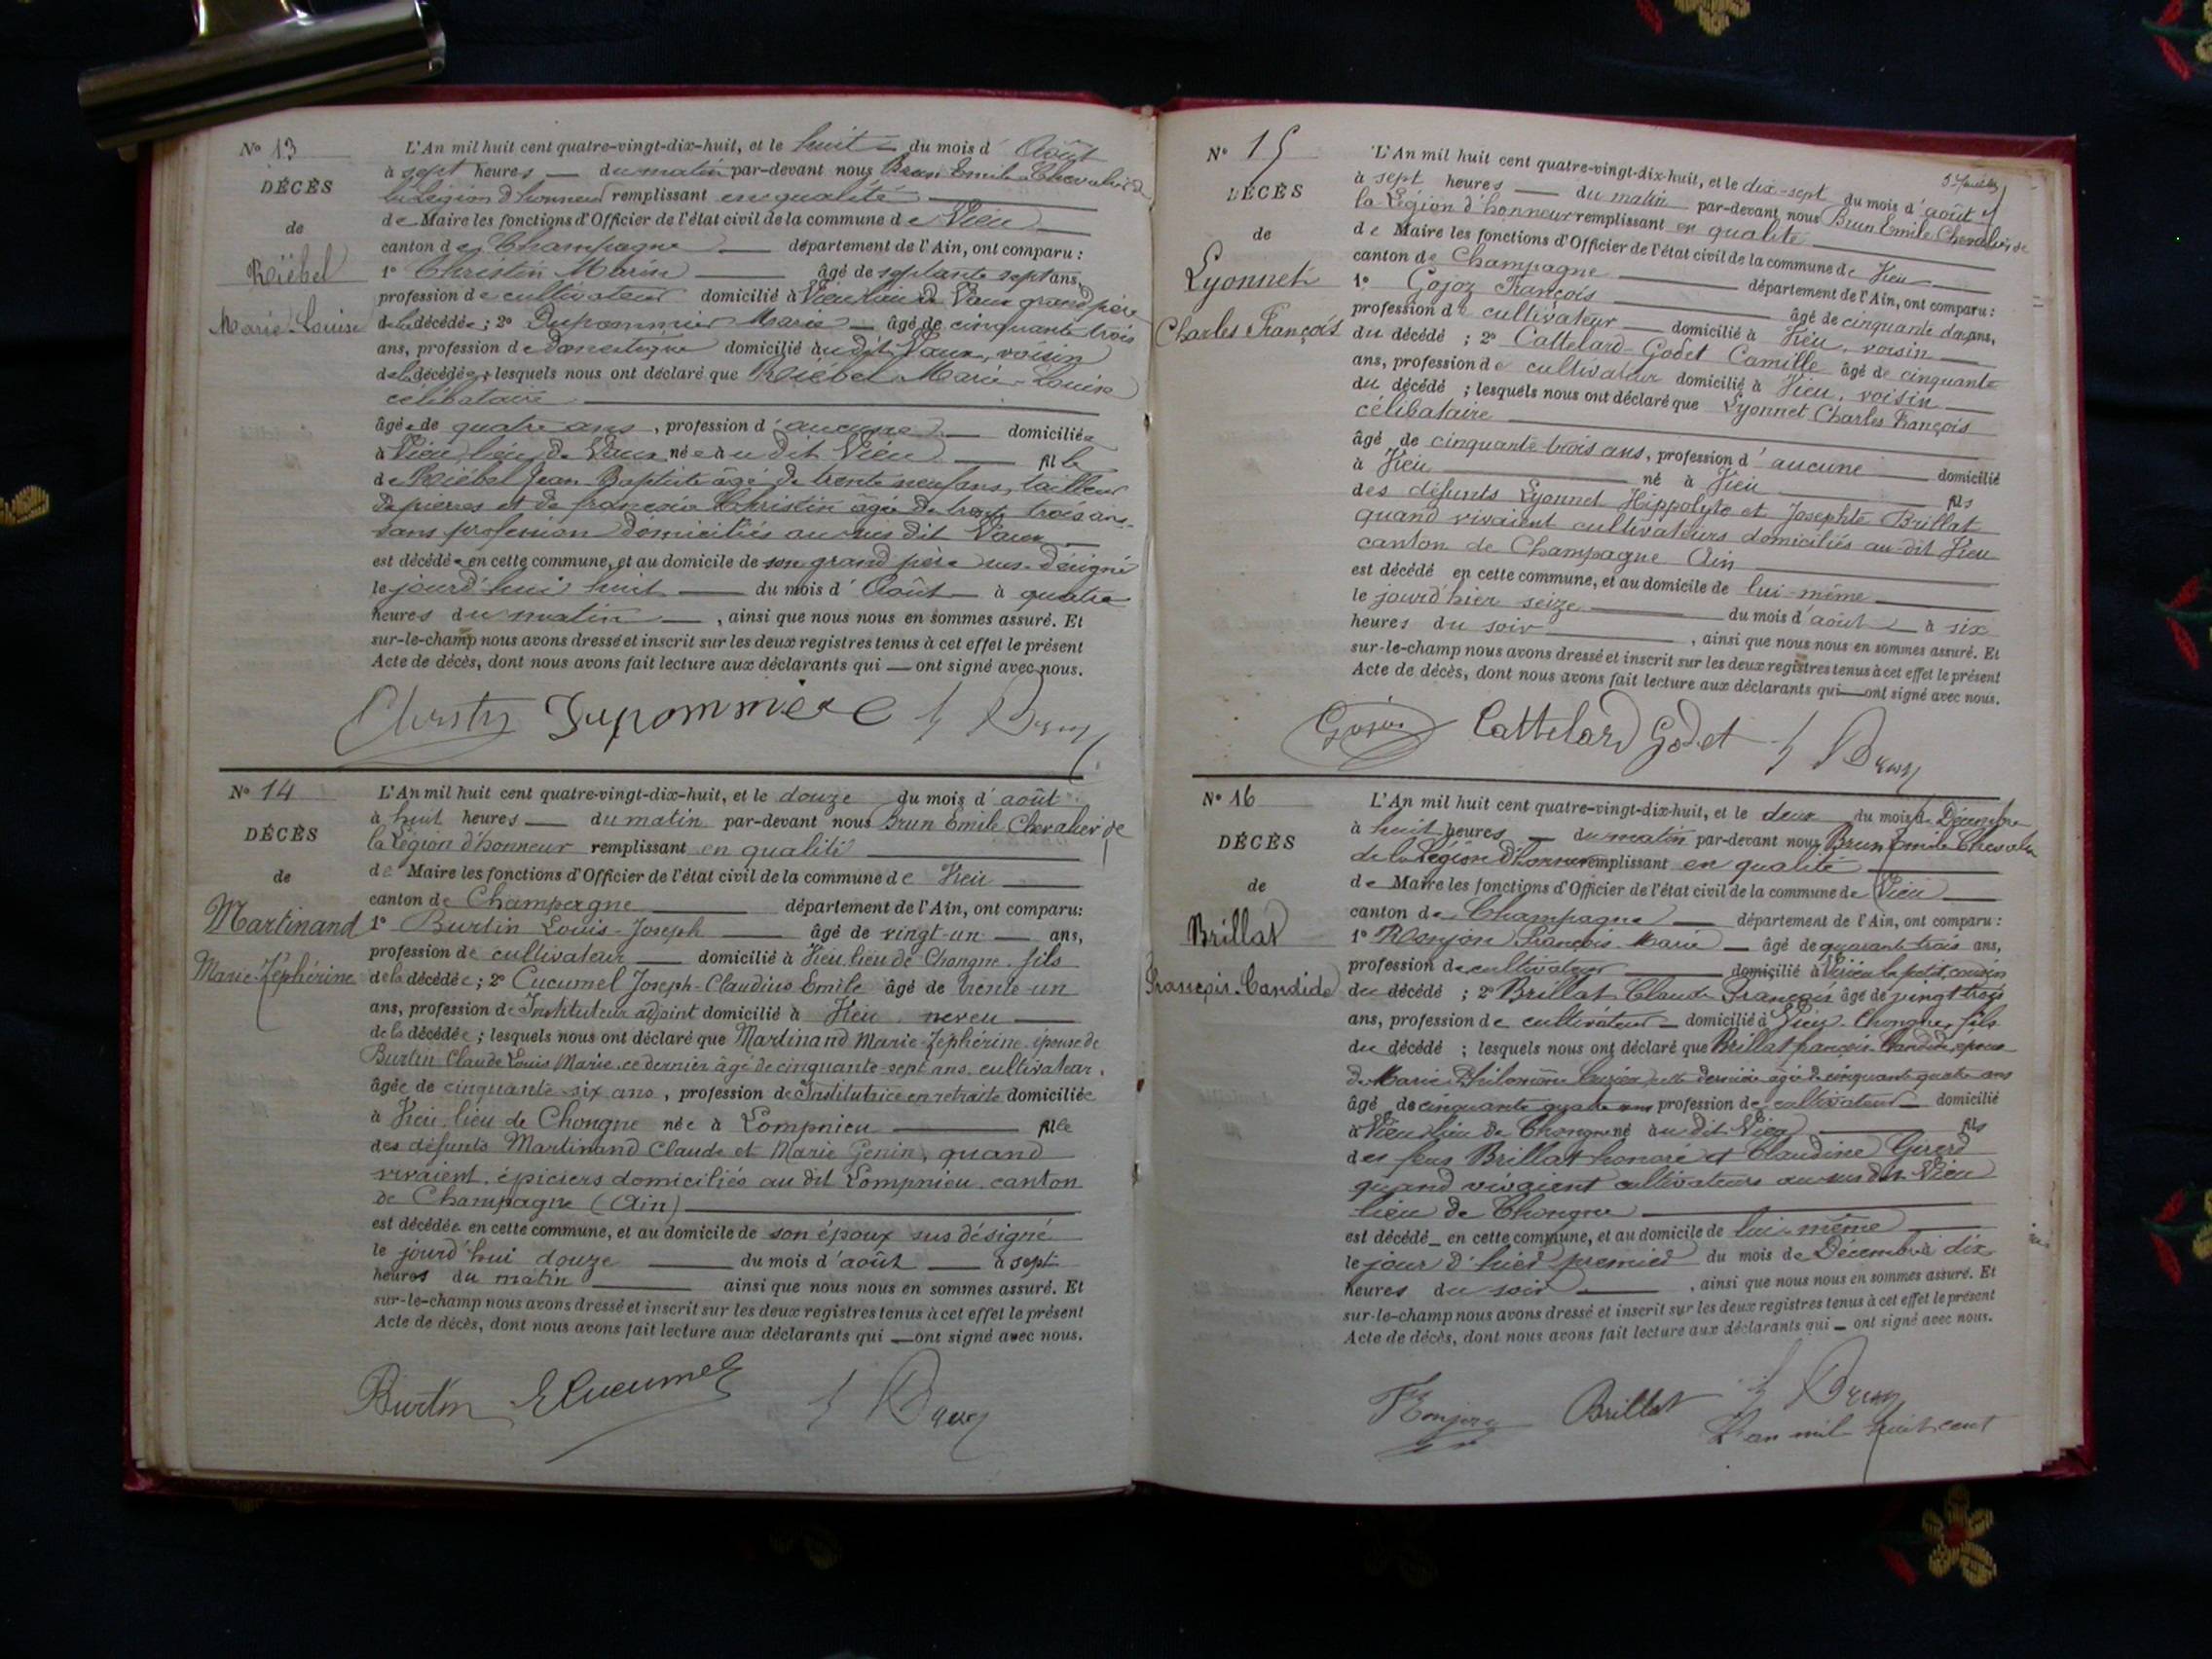 N° 13
DÉCÈS
de
Riébel
Marie Louise
L'An mil huit cent quatre-vingt-dix-huit, et le huit du mois d'Août
à sept heures du matin par-devant nous Brun Emile Chevalier de
la Légion d'honneur remplissant en qualité
de Maire les fonctions d'Officier de l'état civil de la commune de Vieu
canton de Champagne département de l'Ain, ont comparu :
1° Christin Marin âgé de septante sept ans,
profession de cultivateur domicilié à Vieu lieu de Vaux grand père
de la décédée ; 2° Dupommier Marie âgé de cinquante trois
ans, profession de domestique domicilié au dit Vaux, voisin
de la décédée ; lesquels nous ont déclaré que Riébel Marie-Louise
célibataire
âgée de quatre ans, profession d'aucune domiciliée
à Vieu lieu de Vaux née au dit Vieu fille
de Riébel Jean Baptiste âgé de trente neuf ans, tailleur
de pierres et de françoise Christin âgée de trente trois ans
sans profession domiciliés au sus dit Vaux
est décédée en cette commune, et au domicile de son grand père sus-désigné
le jourd'hui huit du mois d'Août à quatre
heures du matin, ainsi que nous nous en sommes assuré. Et
sur-le-champ nous avons dressé et inscrit sur les deux registres tenus à cet effet le présent
Acte de décès, dont nous avons fait lecture aux déclarants qui — ont signé avec nous.
Christin Dupommier E Brun
N° 14
DÉCÈS
de
Martinand
Marie-Zéphérine
L'An mil huit cent quatre-vingt-dix-huit, et le douze du mois d'août
à huit heures du matin par-devant nous Brun Emile Chevalier de
la Légion d'honneur remplissant en qualité
de Maire les fonctions d'Officier de l'état civil de la commune de Vieu
canton de Champagne département de l'Ain, ont comparu :
1° Burtin Louis-Joseph âgé de vingt-un ans,
profession de cultivateur domicilié à Vieu lieu de Chongne fils
de la décédée ; 2° Cucumel Joseph-Claudius Emile âgé de trente-un
ans, profession de Instituteur adjoint domicilié à Vieu, neveu
de la décédée ; lesquels nous ont déclaré que Martinand Marie-Zéphérine épouse de
Burtin Claude Louis Marie, ce dernier âgé de cinquante-sept ans, cultivateur,
âgée de cinquante-six ans, profession de Institutrice en retraite domiciliée
à Vieu, lieu de Chongne née à Lompnieu fille
des défunts Martinand Claude et Marie Genin, quand
vivaient, épiciers domiciliés au dit Lompnieu, canton
de Champagne (Ain)
est décédée en cette commune, et au domicile de son époux sus désigné
le jourd'hui douze du mois d'août à sept
heures du matin ainsi que nous nous en sommes assuré. Et
sur-le-champ nous avons dressé et inscrit sur les deux registres tenus à cet effet le présent
Acte de décès, dont nous avons fait lecture aux déclarants qui — ont signé avec nous.
Burtin E Cucumel E Brun
N° 15
DÉCÈS
de
Lyonnet
Charles François
L'An mil huit cent quatre-vingt-dix-huit, et le dix-sept du mois d'août
à sept heures du matin par-devant nous Brun Emile Chevalier de
la Légion d'honneur remplissant en qualité
de Maire les fonctions d'Officier de l'état civil de la commune de Vieu
canton de Champagne département de l'Ain, ont comparu :
1° Gojoz François âgé de cinquante deux ans,
profession de cultivateur domicilié à Vieu, voisin
du décédé ; 2° Cattelard-Godet Camille âgé de cinquante
ans, profession de cultivateur domicilié à Vieu, voisin
du décédé ; lesquels nous ont déclaré que Lyonnet Charles François
célibataire
âgé de cinquante trois ans, profession d'aucune domicilié
à Vieu né à Vieu fils
des défunts Lyonnet Hippolyte et Josephte Brillat
quand vivaient cultivateurs domiciliés au dit Vieu
canton de Champagne Ain
est décédé en cette commune, et au domicile de lui-même
le jourd'hier seize du mois d'août à six
heures du soir, ainsi que nous nous en sommes assuré. Et
sur-le-champ nous avons dressé et inscrit sur les deux registres tenus à cet effet le présent
Acte de décès, dont nous avons fait lecture aux déclarants qui — ont signé avec nous.
Gojoz Cattelard Godet E Brun
N° 16
DÉCÈS
de
Brillat
François Candide
L'An mil huit cent quatre-vingt-dix-huit, et le deux du mois de Décembre
à huit heures du matin par-devant nous Brun Emile Chevalier
de la Légion d'honneur remplissant en qualité
de Maire les fonctions d'Officier de l'état civil de la commune de Vieu
canton de Champagne département de l'Ain, ont comparu :
1° Monjon François Marie âgé de quarante trois ans,
profession de cultivateur domicilié à Virieu le petit, cousin
du décédé ; 2° Brillat Claude François âgé de vingt trois
ans, profession de cultivateur domicilié à Vieu Chongne, fils
du décédé ; lesquels nous ont déclaré que Brillat françois Candide, époux
de Marie Philomène cette dernière âgée de cinquante quatre ans
âgé de cinquante quatre ans profession de cultivateur domicilié
à Vieu lieu de Chongne né au dit Vieu fils
des feus Brillat honoré et Claudine Girerd
quand vivaient cultivateurs au sus dit Vieu
lieu de Chongne
est décédé en cette commune, et au domicile de lui-même
le jour d'hier premier du mois de Décembre à dix
heures du soir, ainsi que nous nous en sommes assuré. Et
sur-le-champ nous avons dressé et inscrit sur les deux registres tenus à cet effet le présent
Acte de décès, dont nous avons fait lecture aux déclarants qui — ont signé avec nous.
Monjon Brillat E Brun
L'an mil huit cent